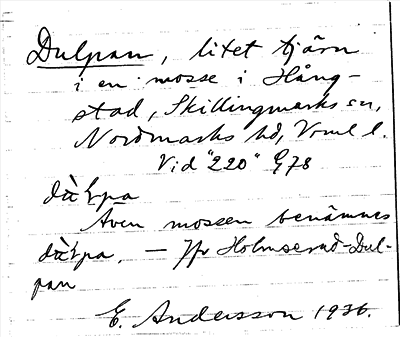 Dulpan, litet tjärn
i en mosse i Hång-
stad, Skillingmarks sn,
Nordmarks hd, Vrml l.
Vid "220" G78
Även mossen benämnes
— Jfr Holmserud-Dul-
pan
E. Andersson 1936.